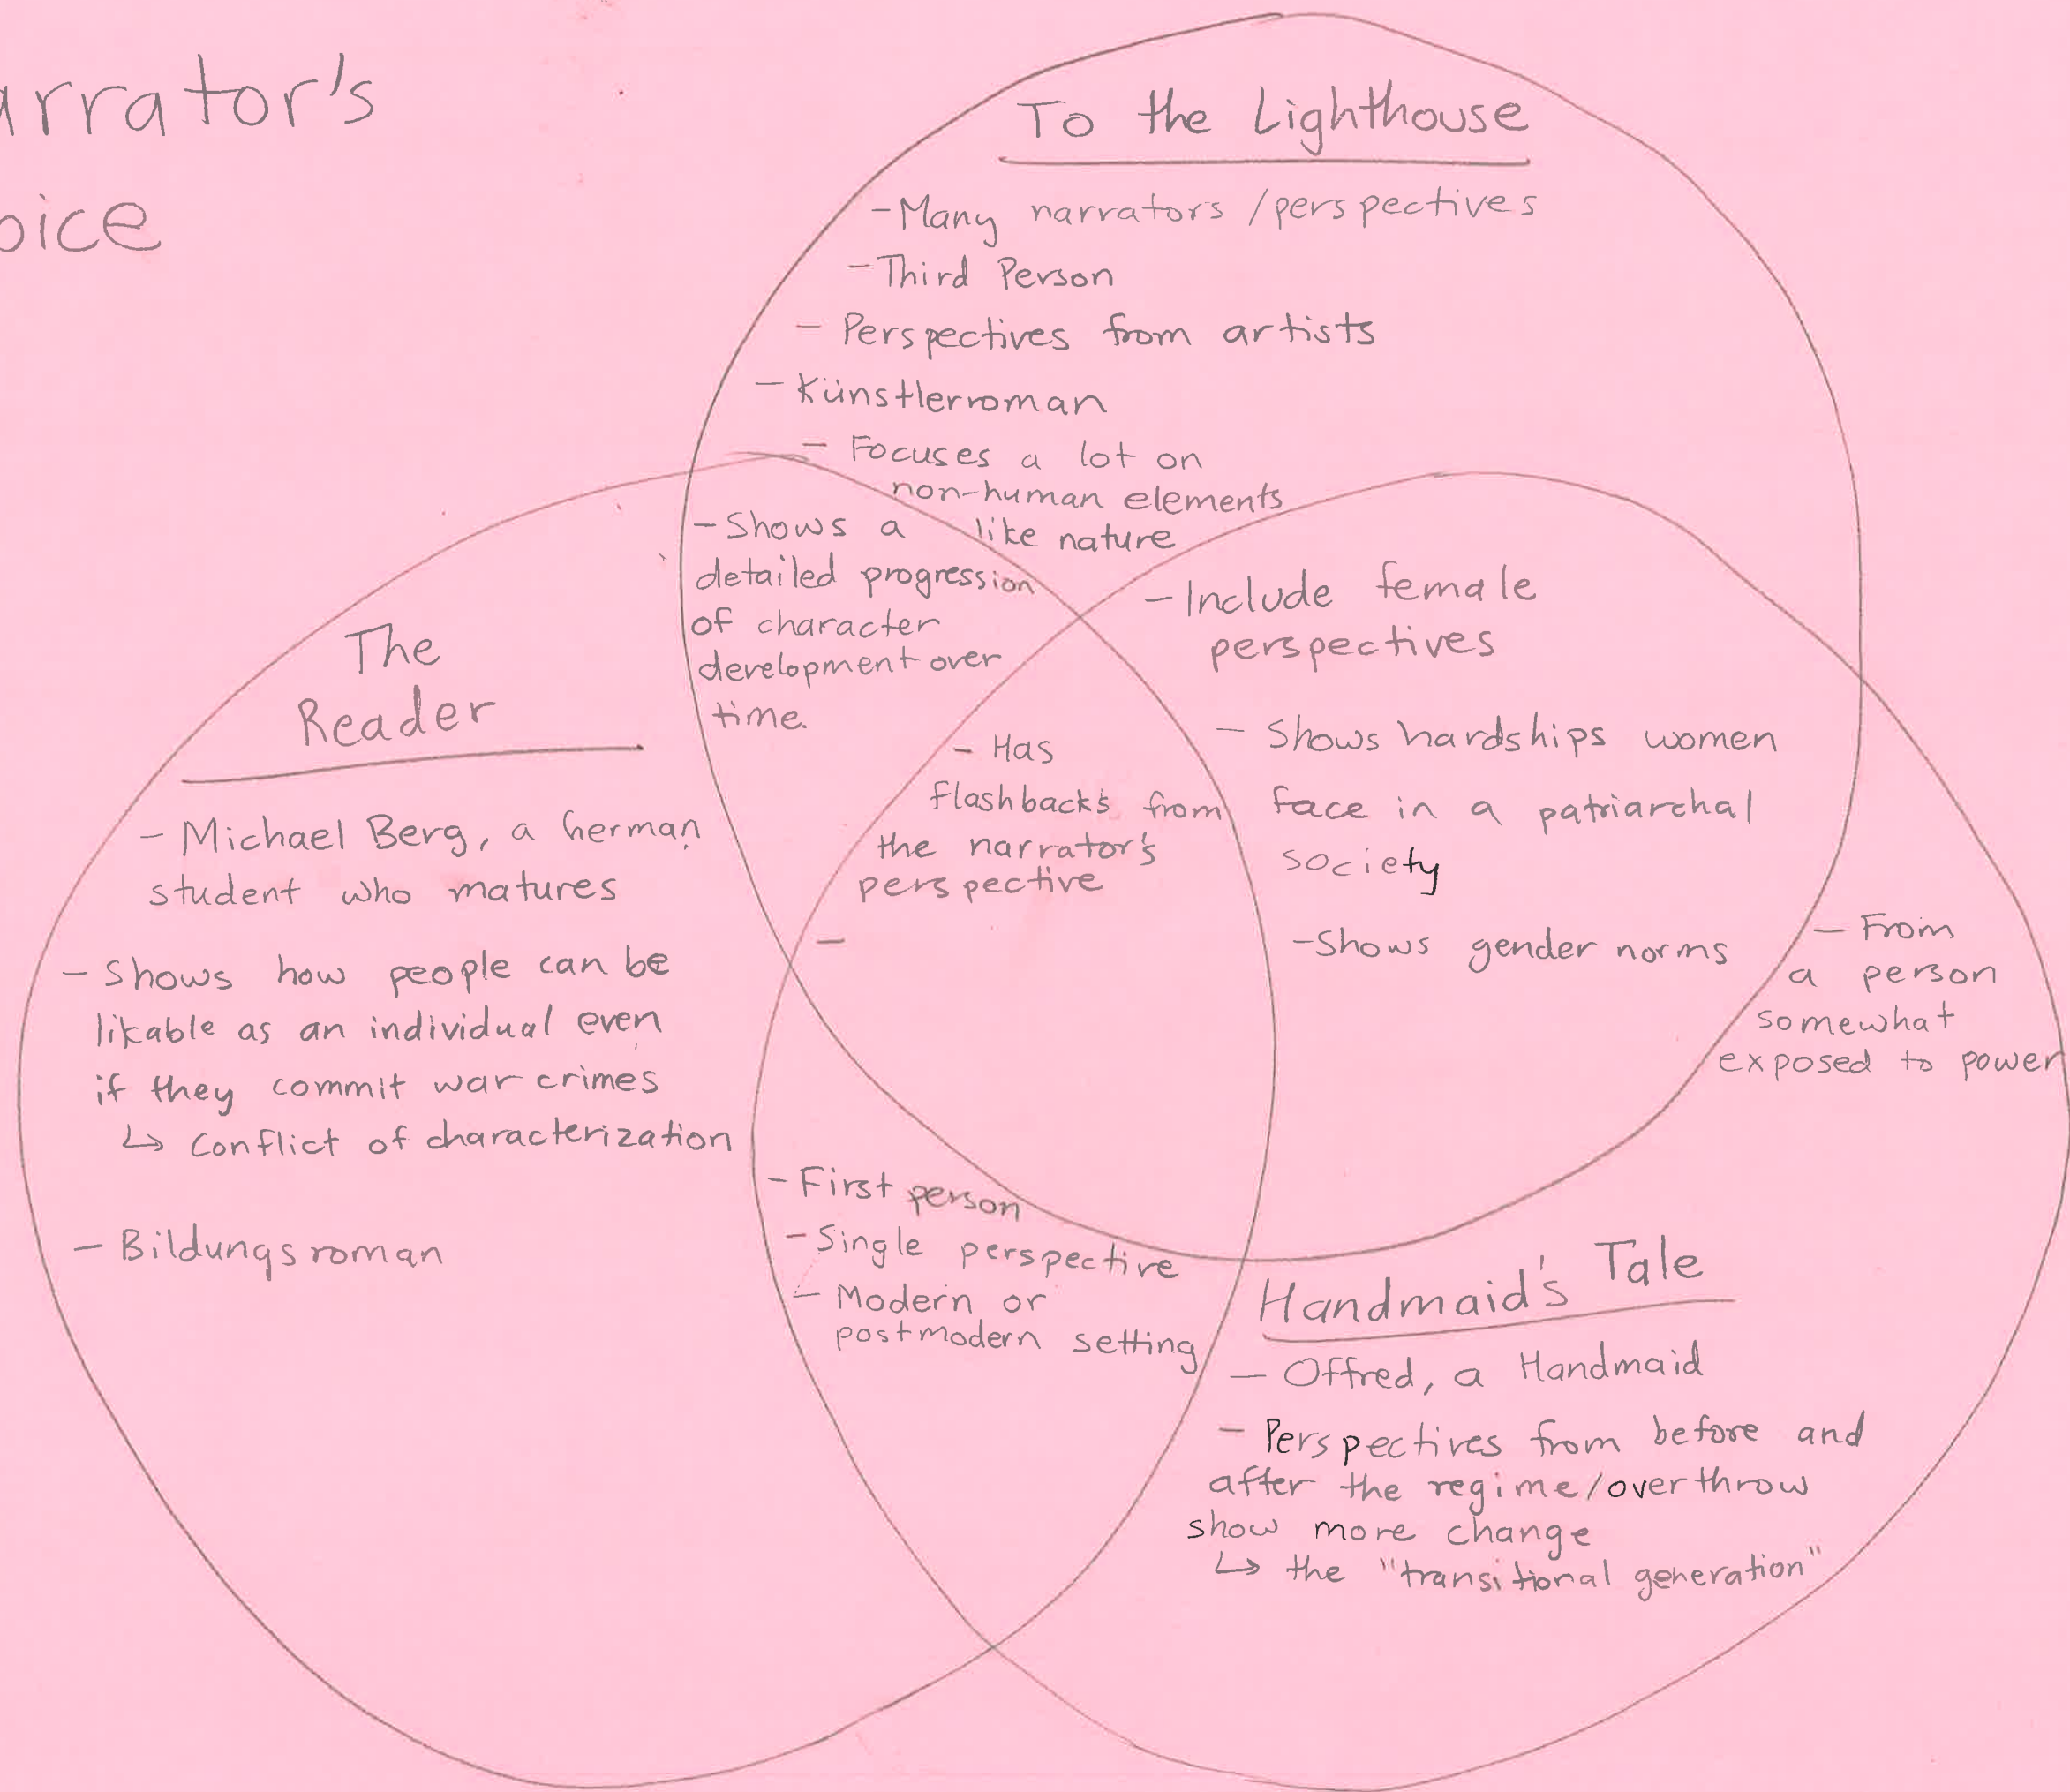 arrator's
oice
To the Lighthouse
- Many narrators / perspectives
- Third Person
- Perspectives from artists
- Künstlerroman
- Focuses a lot on
non-human elements
like nature
- Shows a
detailed progression
of character
development over
time.
- Include female
perspectives
- Shows hardships women
face in a patriarchal
society
- Shows gender norms
- Has
flashbacks from
the narrator's
perspective
-
The
Reader
- Michael Berg, a German
student who matures
- Shows how people can be
likable as an individual even
if they commit war crimes
↳ Conflict of characterization
- Bildungsroman
- From
a person
somewhat
exposed to power
- First person
- Single perspective
- Modern or
postmodern setting
Handmaid's Tale
- Offred, a Handmaid
- Perspectives from before and
after the regime/overthrow
show more change
↳ the "transitional generation"